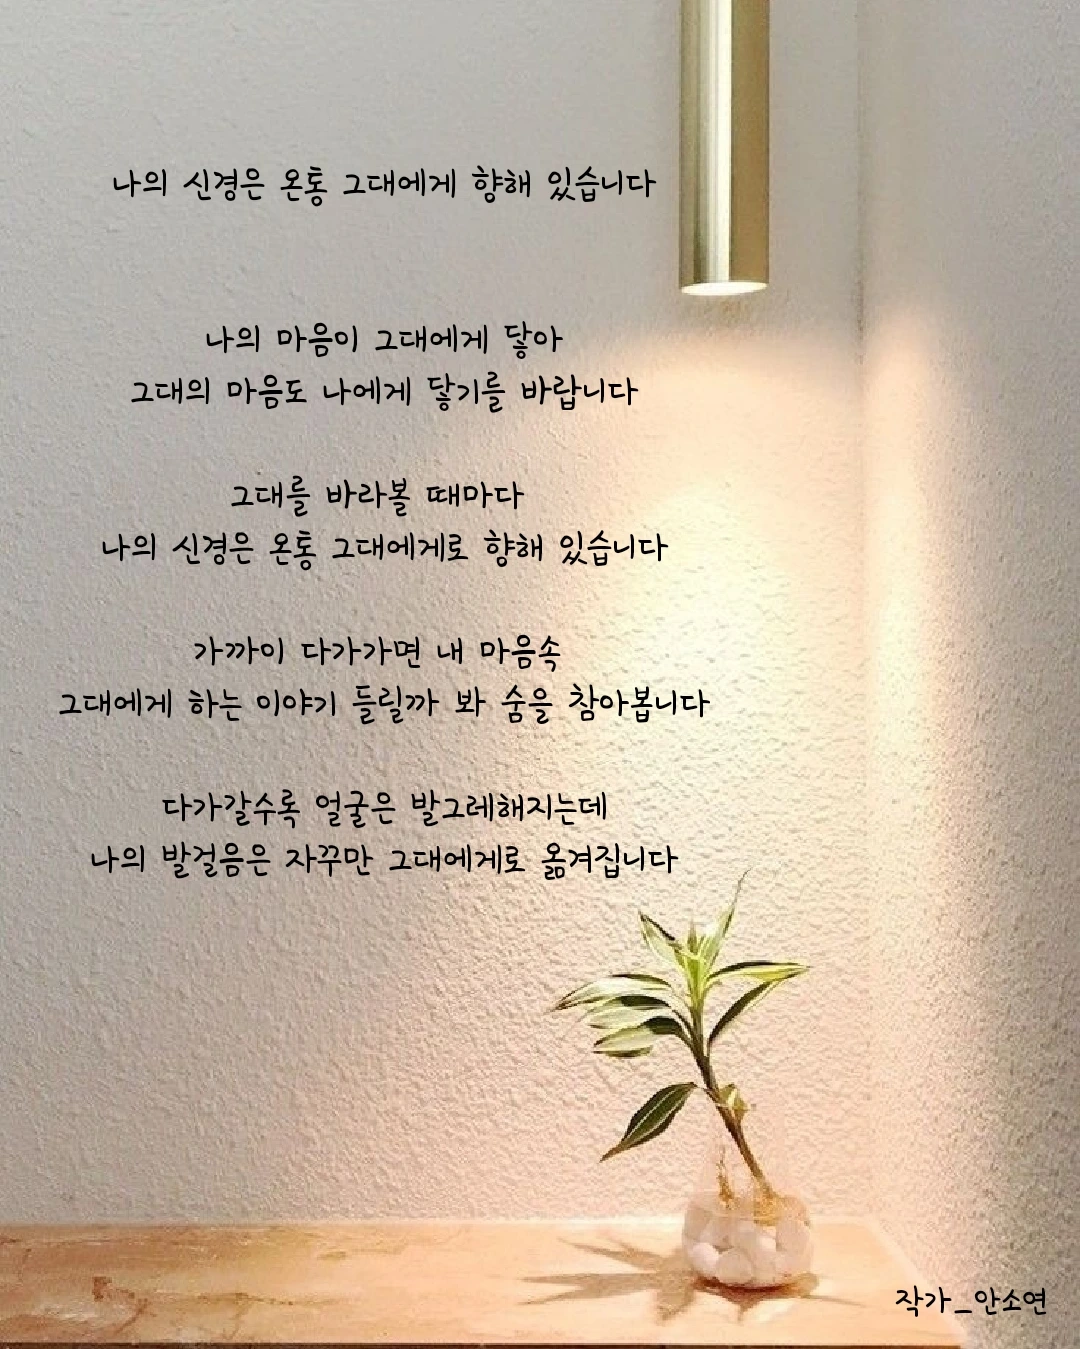 나의 신경은 온통 그대에게 향해 있습니다
나의 마음이 그대에게 닿아
그대의 마음도 나에게 닿기를 바랍니다
그대를 바라볼 때마다
나의 신경은 온통 그대에게로 향해 있습니다
가까이 다가가면 내 마음속
그대에게 하는 이야기 들릴까 봐 숨을 참아봅니다
다가갈수록 얼굴은 발그레해지는데
나의 발걸음은 자꾸만 그대에게로 옮겨집니다
작가_안소연